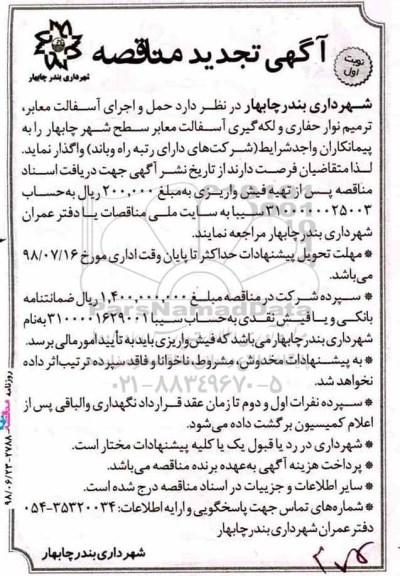 آگهی تجدید مناقصه
نوبت اول
شهرداری بندر چابهار
شهرداری بندر چابهار در نظر دارد حمل و اجرای آسفالت معابر،
ترمیم نوار حفاری و لکه گیری آسفالت معابر سطح شهر چابهار را به
پیمانکاران واجد شرایط (شرکت‌های دارای رتبه راه وباند) واگذار نماید.
لذا متقاضیان فرصت دارند از تاریخ نشر آگهی جهت دریافت اسناد
مناقصه پس از تهیه فیش واریزی به مبلغ ۲۰۰,۰۰۰ ریال به حساب
سیبا به سایت ملی مناقصات یا دفتر عمران
شهرداری بندر چابهار مراجعه نمایند.
* مهلت تحویل پیشنهادات حداکثر تا پایان وقت اداری مورخ ۹۸/۰۷/۱۶
می‌باشد.
* سپرده شرکت در مناقصه مبلغ ۱,۴۰۰,۰۰۰,۰۰۰ ریال ضمانتنامه
بانکی و یا فیش نقدی به حساب سیبا ۳۱۰۰۰۰۱۶۲۹۰۰۱ به نام
شهرداری بندر چابهار می‌باشد که فیش واریزی باید به تأیید امور مالی برسد.
* به پیشنهادات مخدوش، مشروط، ناخوانا و فاقد سپرده ترتیب اثر داده
نخواهد شد.
* سپرده نفرات اول و دوم تا زمان عقد قرارداد نگهداری والباقی پس از
اعلام کمیسیون برگشت داده می‌شود.
* شهرداری در رد یا قبول یک یا کلیه پیشنهادات مختار است.
* پرداخت هزینه آگهی به عهده برنده مناقصه می‌باشد.
* سایر اطلاعات و جزییات در اسناد مناقصه درج شده است.
* شماره‌های تماس جهت پاسخگویی و ارایه اطلاعات: ۳۵۳۲۰۰۳۴-۰۵۴
دفتر عمران شهرداری بندر چابهار
شهرداری بندر چابهار
ParsNamadData
۰۲۱-۸۸۳۴۹۶۷۰-۵
روزنامه مناقصه ۲۷۸۸-۹۸/۰۶/۲۳